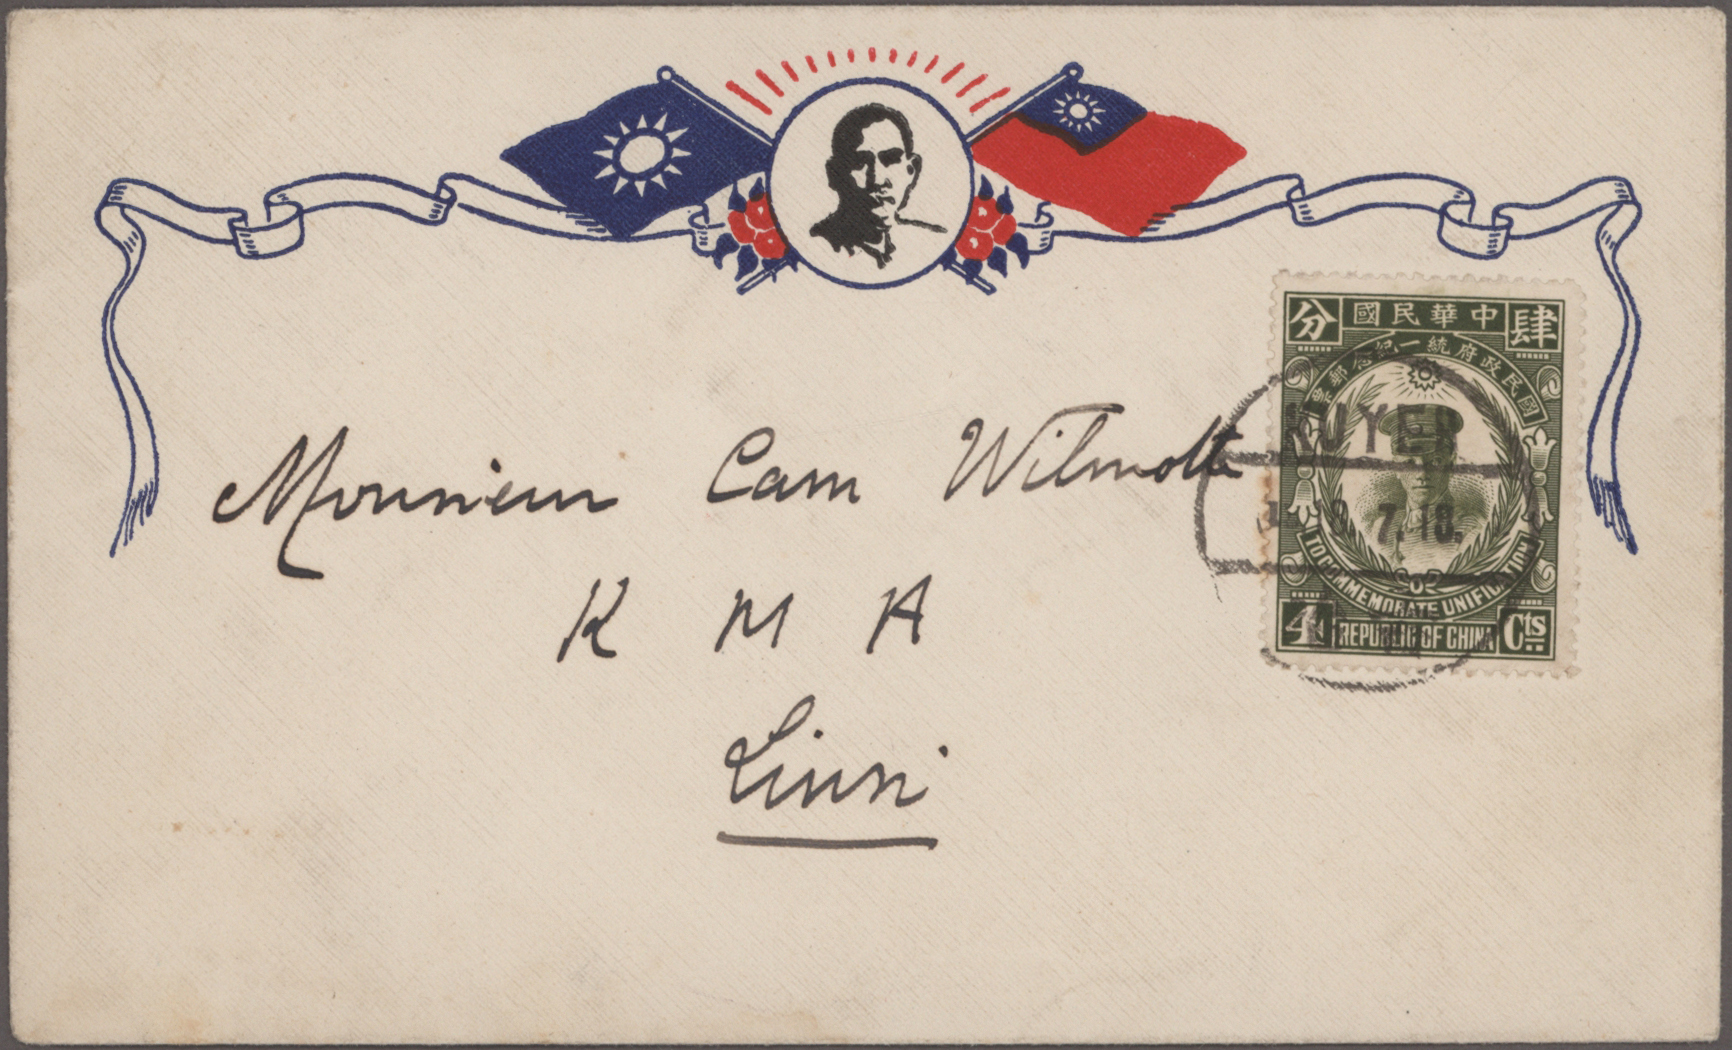 Monsieur Cam Wilmotte
K M A
Linsi
肆 中華民國 分
國民政府統一紀念郵票
7.10.
TO COMMEMORATE UNIFICATION
4 REPUBLIC OF CHINA Cts